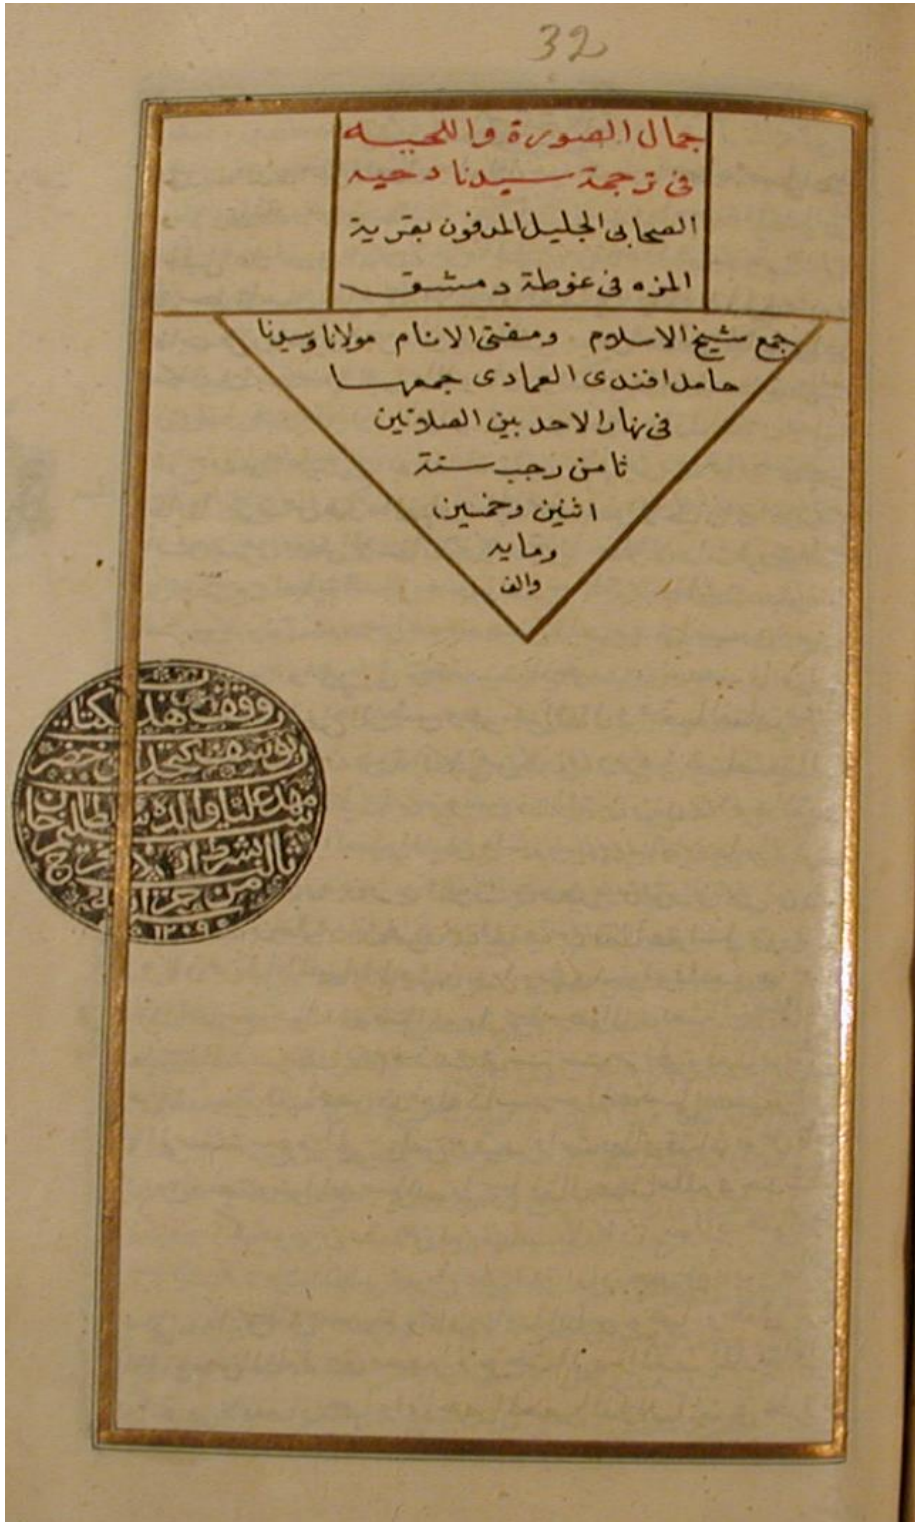 32
جمال الصورة واللحيه
فى ترجمة سيدنا دحيه
الصحابى الجليل المدفون بقرية
المزه فى غوطة دمشق
جمع شيخ الاسلام ومفتى الانام مولانا وسيدنا
حامد افندى العمادى جمعها
فى نهار الاحد بين الصلاتين
ثامن رجب سنة
اثنين وخمسين
ومايه
والف
وقف هذا الكتاب
مهد عليا والدة سلطان سليم خان
ثالث بشرط ان
١٢٠٩